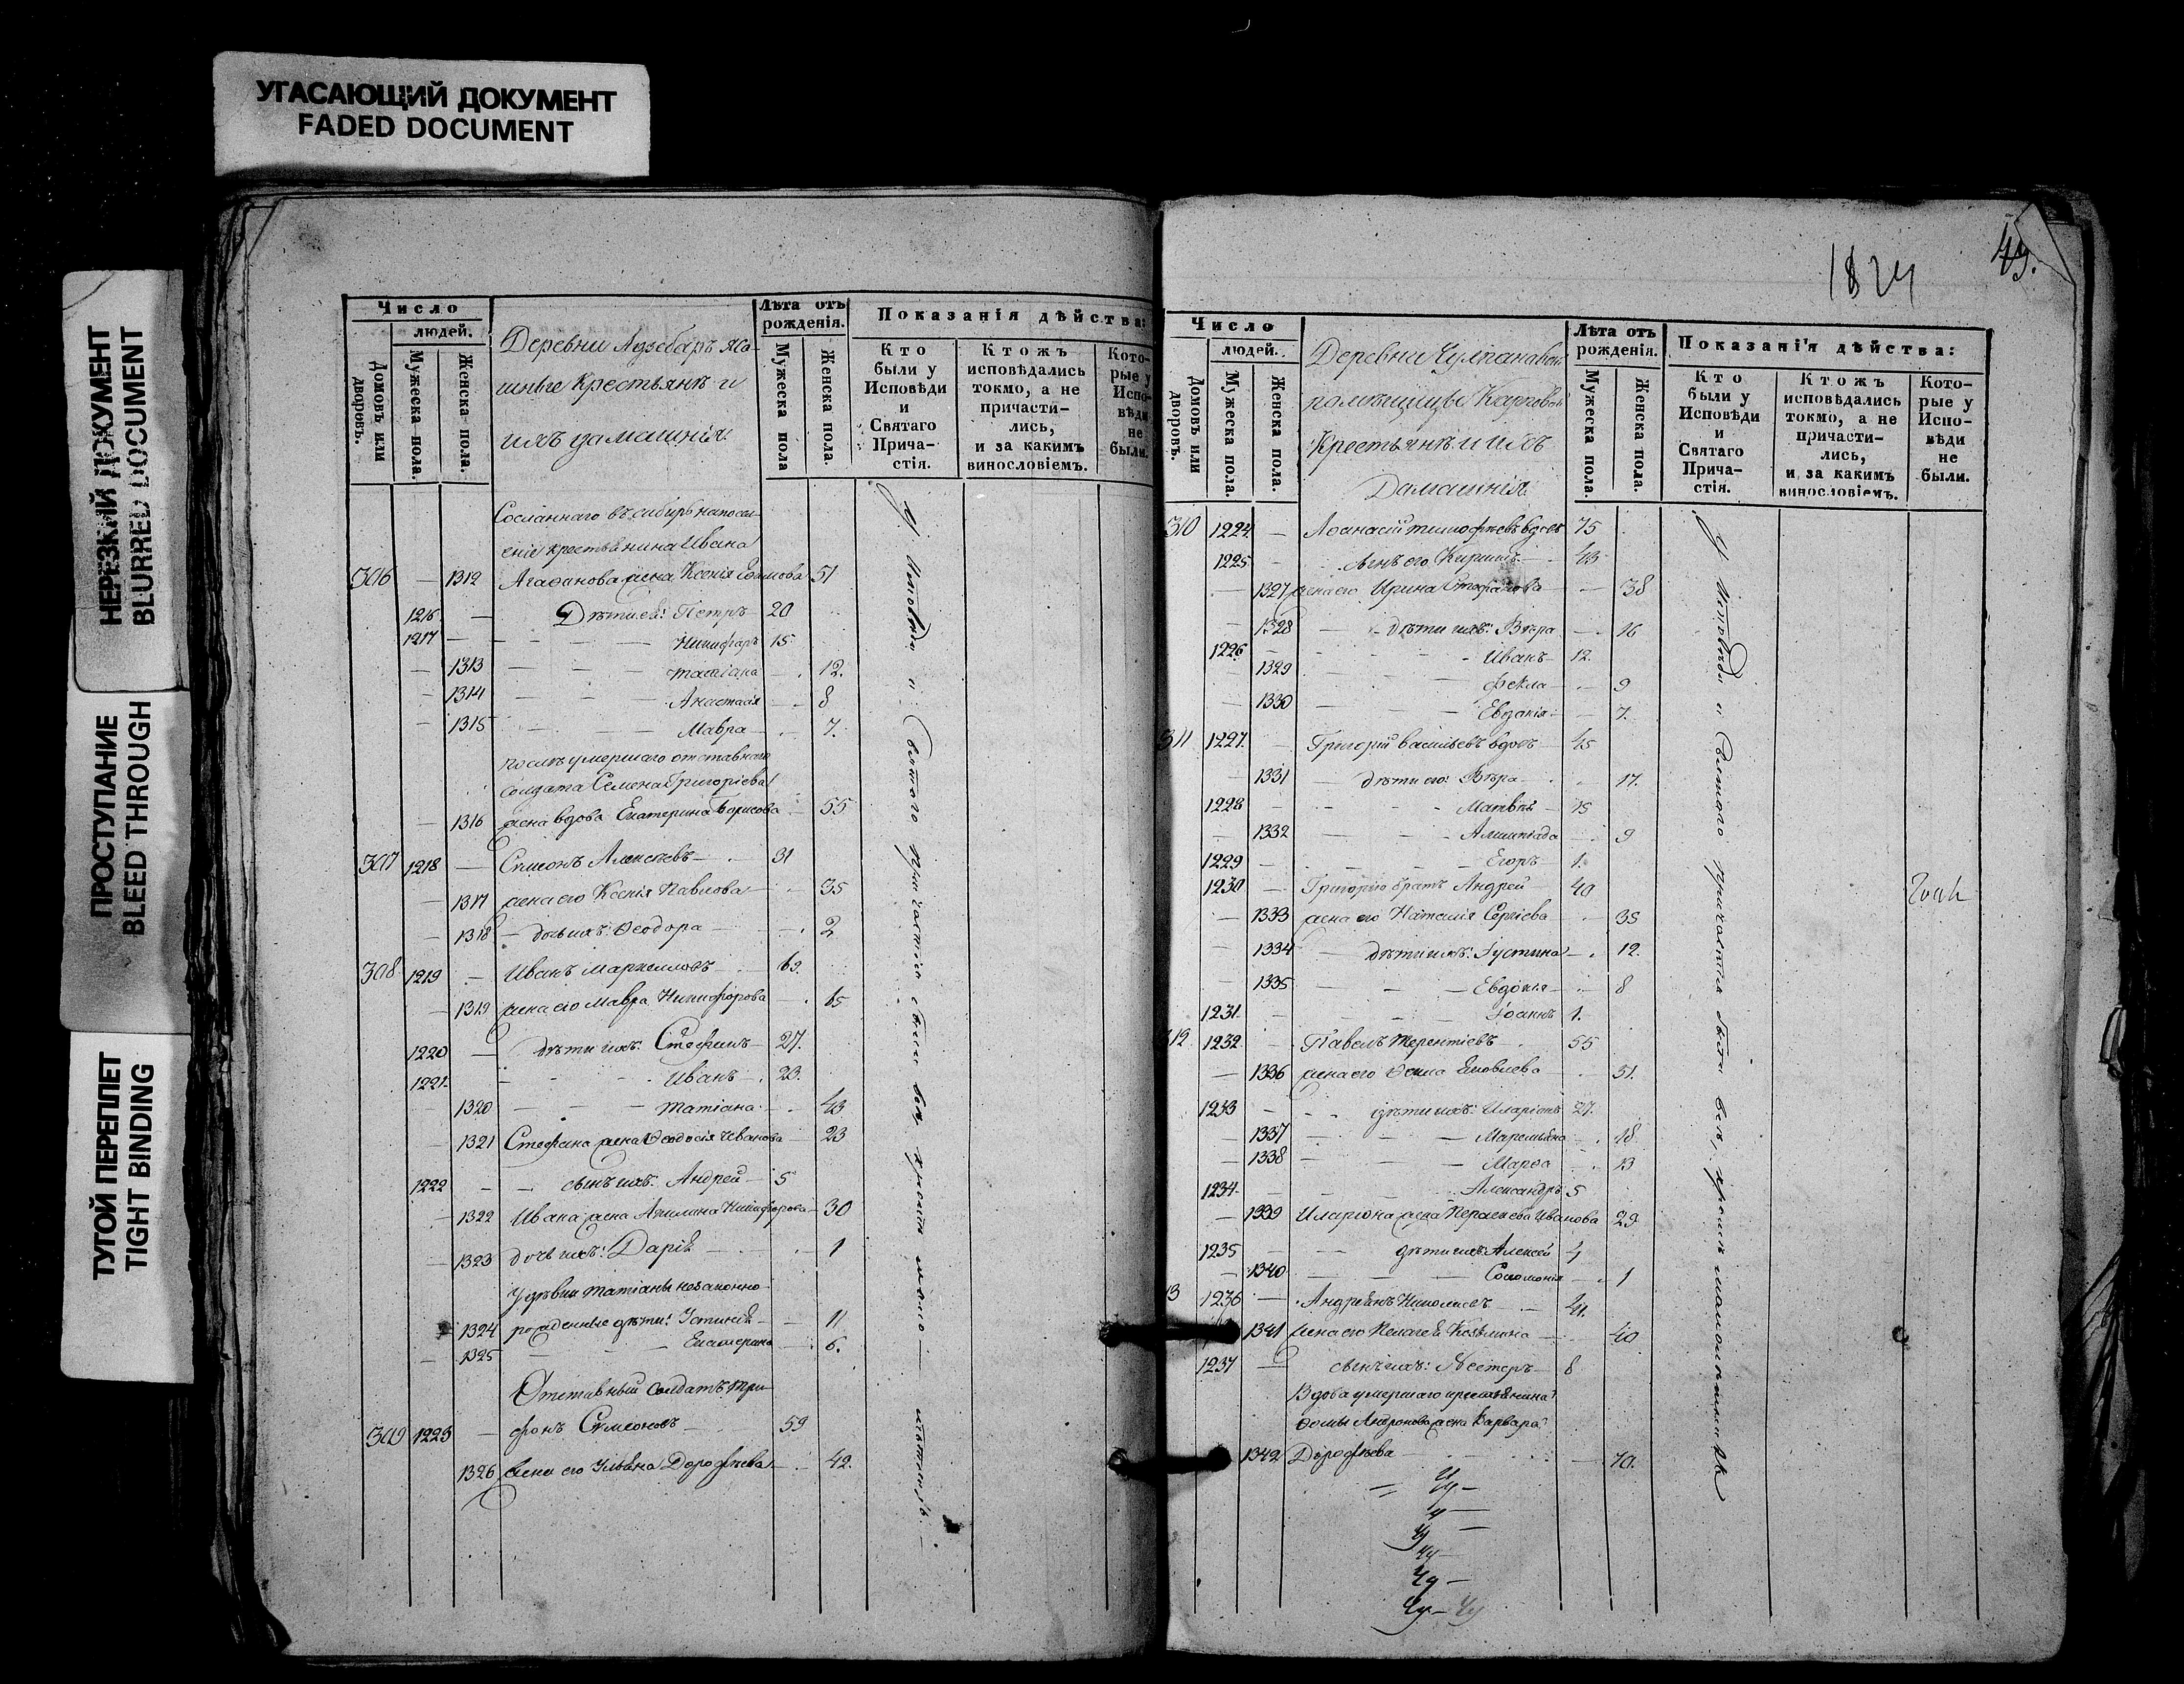 УГАСАЮЩИЙ ДОКУМЕНТ
FADED DOCUMENT
НЕРЕЗКИЙ ДОКУМЕНТ
BLURRED DOCUMENT
ПРОСТУПАНИЕ
BLEED THROUGH
ТУГОЙ ПЕРЕПЛЕТ
TIGHT BINDING
Число
людей.
Домовъ или дворовъ.
Мужеска пола.
Женска пола.
Деревни
шные Крестьянѣ и
ихъ домашнія.
Лѣта отъ рожденія.
Мужеска пола
Женска пола.
Показанія дѣйства:
Кто были у Исповѣди и Святаго Прича-стія.
Ктожъ исповѣдались токмо, а не причасти-лись, и за какимъ винословіемъ.
Кото-рые у Испо-вѣди не были.
Сосланнаго въ сибирь на посел-
еніе крестьянина Ивана
306 — 1312 Агафонова жена Ксенія 51
1216 — Дѣти ея: Петръ 20
1217 — Никифоръ 15
— 1313 Татіана — 12.
— 1314 Анастасія — 8
— 1315 Мавра — 7.
послѣ умершаго отставнаго
солдата Семена Григоріева
— 1316 жена вдова Екатерина Борисова — 55
307 1218 — Симеонъ Алексѣевъ — 31
— 1317 жена его Ксенія Павлова — 35
— 1318 — дочь ихъ: Ѳеодора — 2
308 1219 — Иванъ Маркелловъ — 69.
— 1319 жена его Мавра Никифорова — 65
1220 — дѣти ихъ: Стефанъ — 27.
1221. Иванъ — 23.
1320 — Татіана — 43
1321 Стефана жена Ѳеодосія Иванова — 23
1222 — сынъ ихъ: Андрей — 5
— 1322 Ивана жена Акилина Никифорова — 30
— 1323 дочь ихъ: Дарія — 1
У дѣвки Татіаны незаконно-
1324 рожденные дѣти: Устинія — 11
— 1325 Екатерина — 6.
Отставный солдатъ Три-
309 1223 — фонъ Симеоновъ — 59
1326 жена его Ульяна Дорофѣева — 42.
У Исповѣди и Святаго причастія были всѣ кромѣ малолѣтныхъ
1824
49.
Число
людей.
Домовъ или дворовъ.
Мужеска пола.
Женска пола.
Деревни Чулпановой
помѣщицы Карповой
Крестьянѣ и ихъ
Домашнія
Лѣта отъ рожденія.
Мужеска пола.
Женска пола.
Показанія дѣйства:
Кто были у Исповѣди и Святаго Прича-стія.
Ктожъ исповѣдались токмо, а не причасти-лись, и за какимъ винословіемъ.
Кото-рые у Испо-вѣди не были.
310 1224 — Аѳанасій Тимофѣевъ вдовъ 75
1225 — сынъ его Кириллъ 43
— 1327 жена его Ирина Стефанова — 38
— 1328 — дѣти ихъ: Вѣра — 16
1226 — Иванъ — 12.
1329 — Ѳекла — 9
— 1330 — Евдокія — 7.
311 1227. — Григорій Васильевъ вдовъ — 45
— 1331 — дѣти его: Вѣра — 17.
1228 — Матвѣй — 15
— 1332 — 9
1229 — Егоръ — 1.
1230 — Григорію братъ Андрей — 40
— 1333 жена его Наталія Сергіева — 35
— 1334 — дѣти ихъ: Іустина — 12.
— 1335 — Евдокія — 8
1231. — Іоаннъ 1.
312 1232 — Павелъ Терентіевъ 55
— 1336 жена его Яковлева — 51.
1233 — дѣти ихъ: Иларіонъ 27.
1337 — — 18
— 1338 — Марѳа — 13
1234 — Александръ 5
— 1339 Иларіона жена Параскева Иванова 29
1235 — дѣти ихъ: Алексей 4
— 1340 — Соломонія — 1
313 1236 — Андріянъ Николаевъ — 41.
1341 жена его Пелагея Козьмина — 40
1237 — сынъ ихъ: Нестеръ — 8
Вдова умершаго крестьянина
Ѳомы Андронова жена Варвара
1342 Дорофѣева — 70.
У Исповѣди и Святаго причастія были всѣ, кромѣ малолѣтныхъ